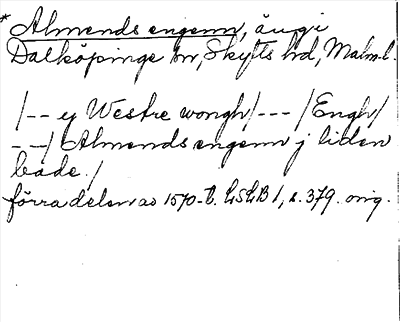 * Almends engenn, äng i
Dalköpinge sn, Skytts hd, Malm. l.
/-- ey Westre wongh/--- /Engh/
--/ Almends engenn j liden
både./
förra delen av 1570-t. LSLB 1, s. 379. orig.